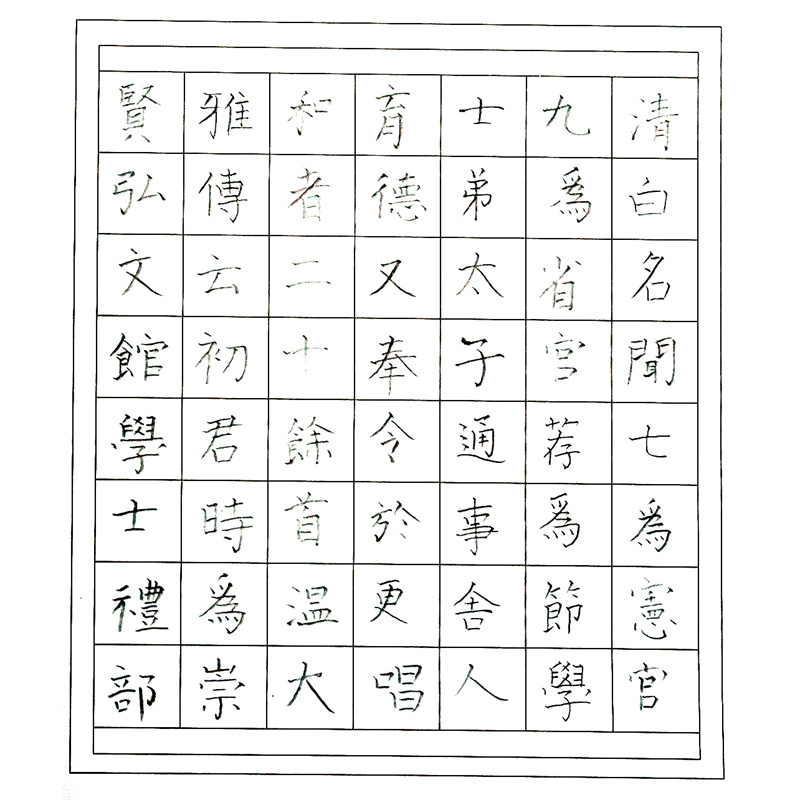 清白名聞七爲憲官
九爲省宮荐爲節學
士弟太子通事舍人
育德又奉令於更唱
和者二十餘首温大
雅傳云初君時爲崇
賢弘文館學士禮部